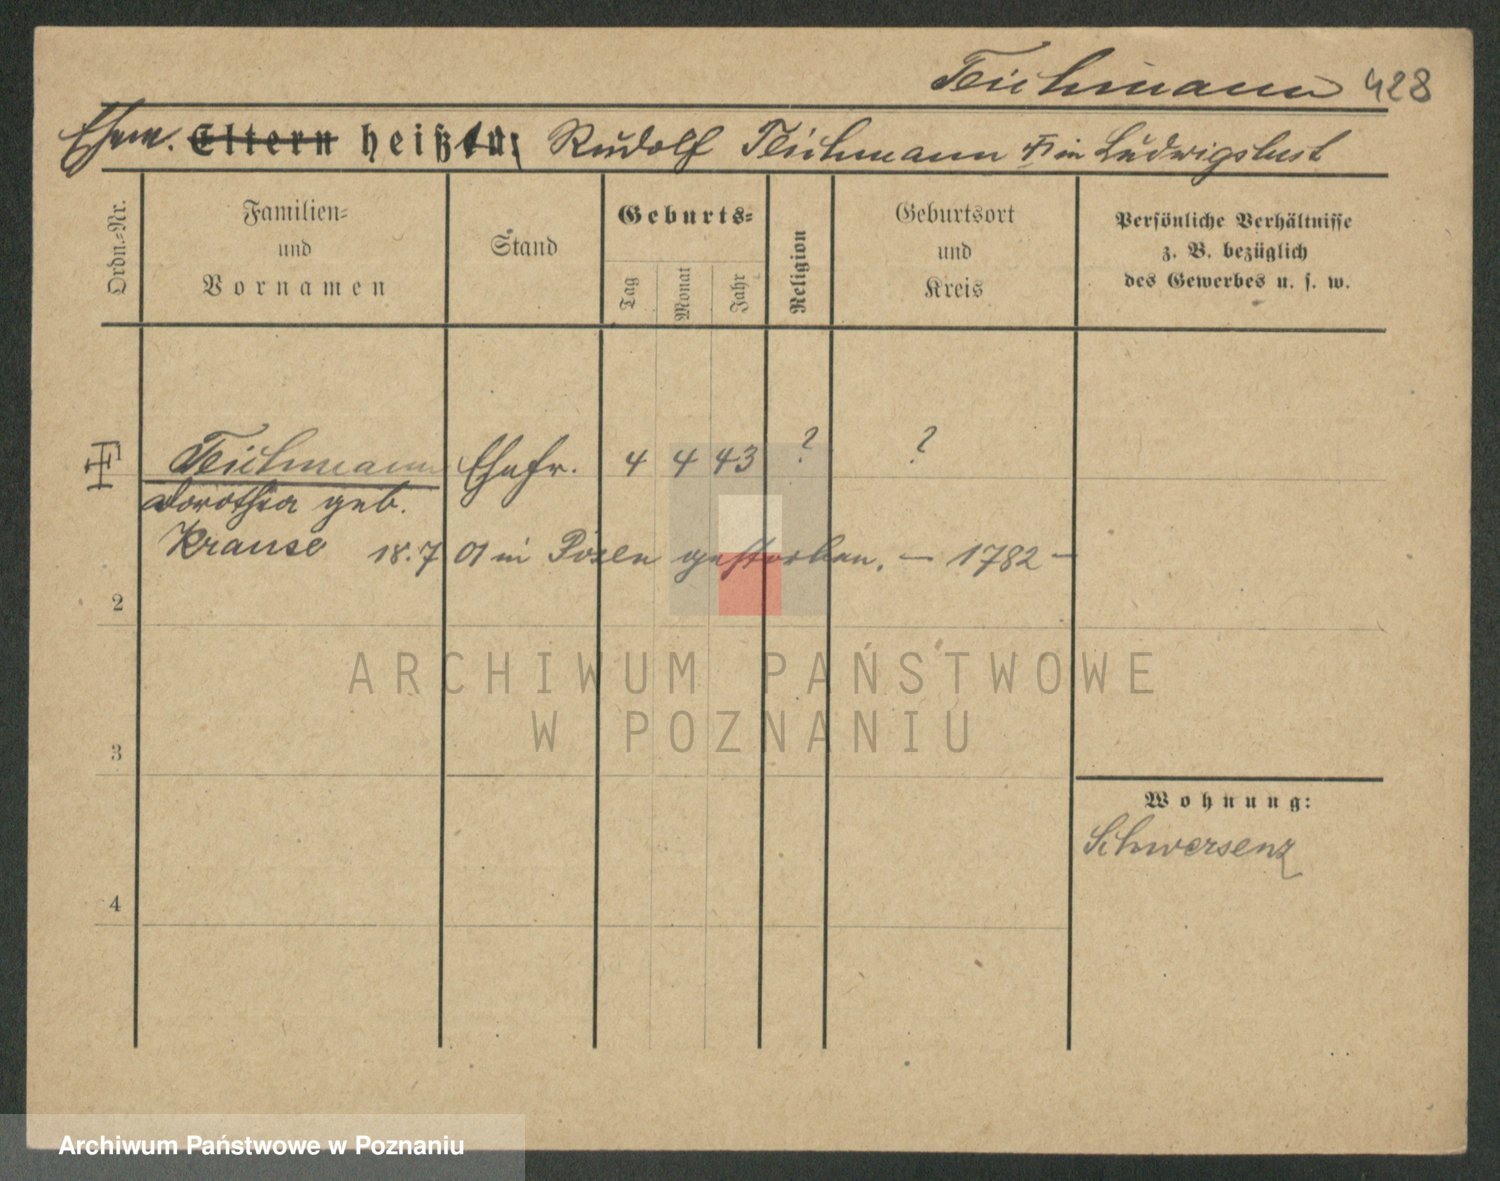 Teichmann 428
Ehem. Eltern heißen: Rudolf Teichmann † in Ludwigslust
Ordn.-Nr.
Familien-
und
Vornamen
Stand
Geburts-
Tag
Monat
Jahr
Religion
Geburtsort
und
Kreis
Persönliche Verhältnisse
z. B. bezüglich
des Gewerbes u. s. w.
Teichmann Ehefr. 4 4 43 ? ?
Dorothea geb.
Krause 18.7 01 in Posen gestorben. — 1782 —
2
3
4
Wohnung:
Schwersenz
ARCHIWUM PAŃSTWOWE
W POZNANIU
Archiwum Państwowe w Poznaniu